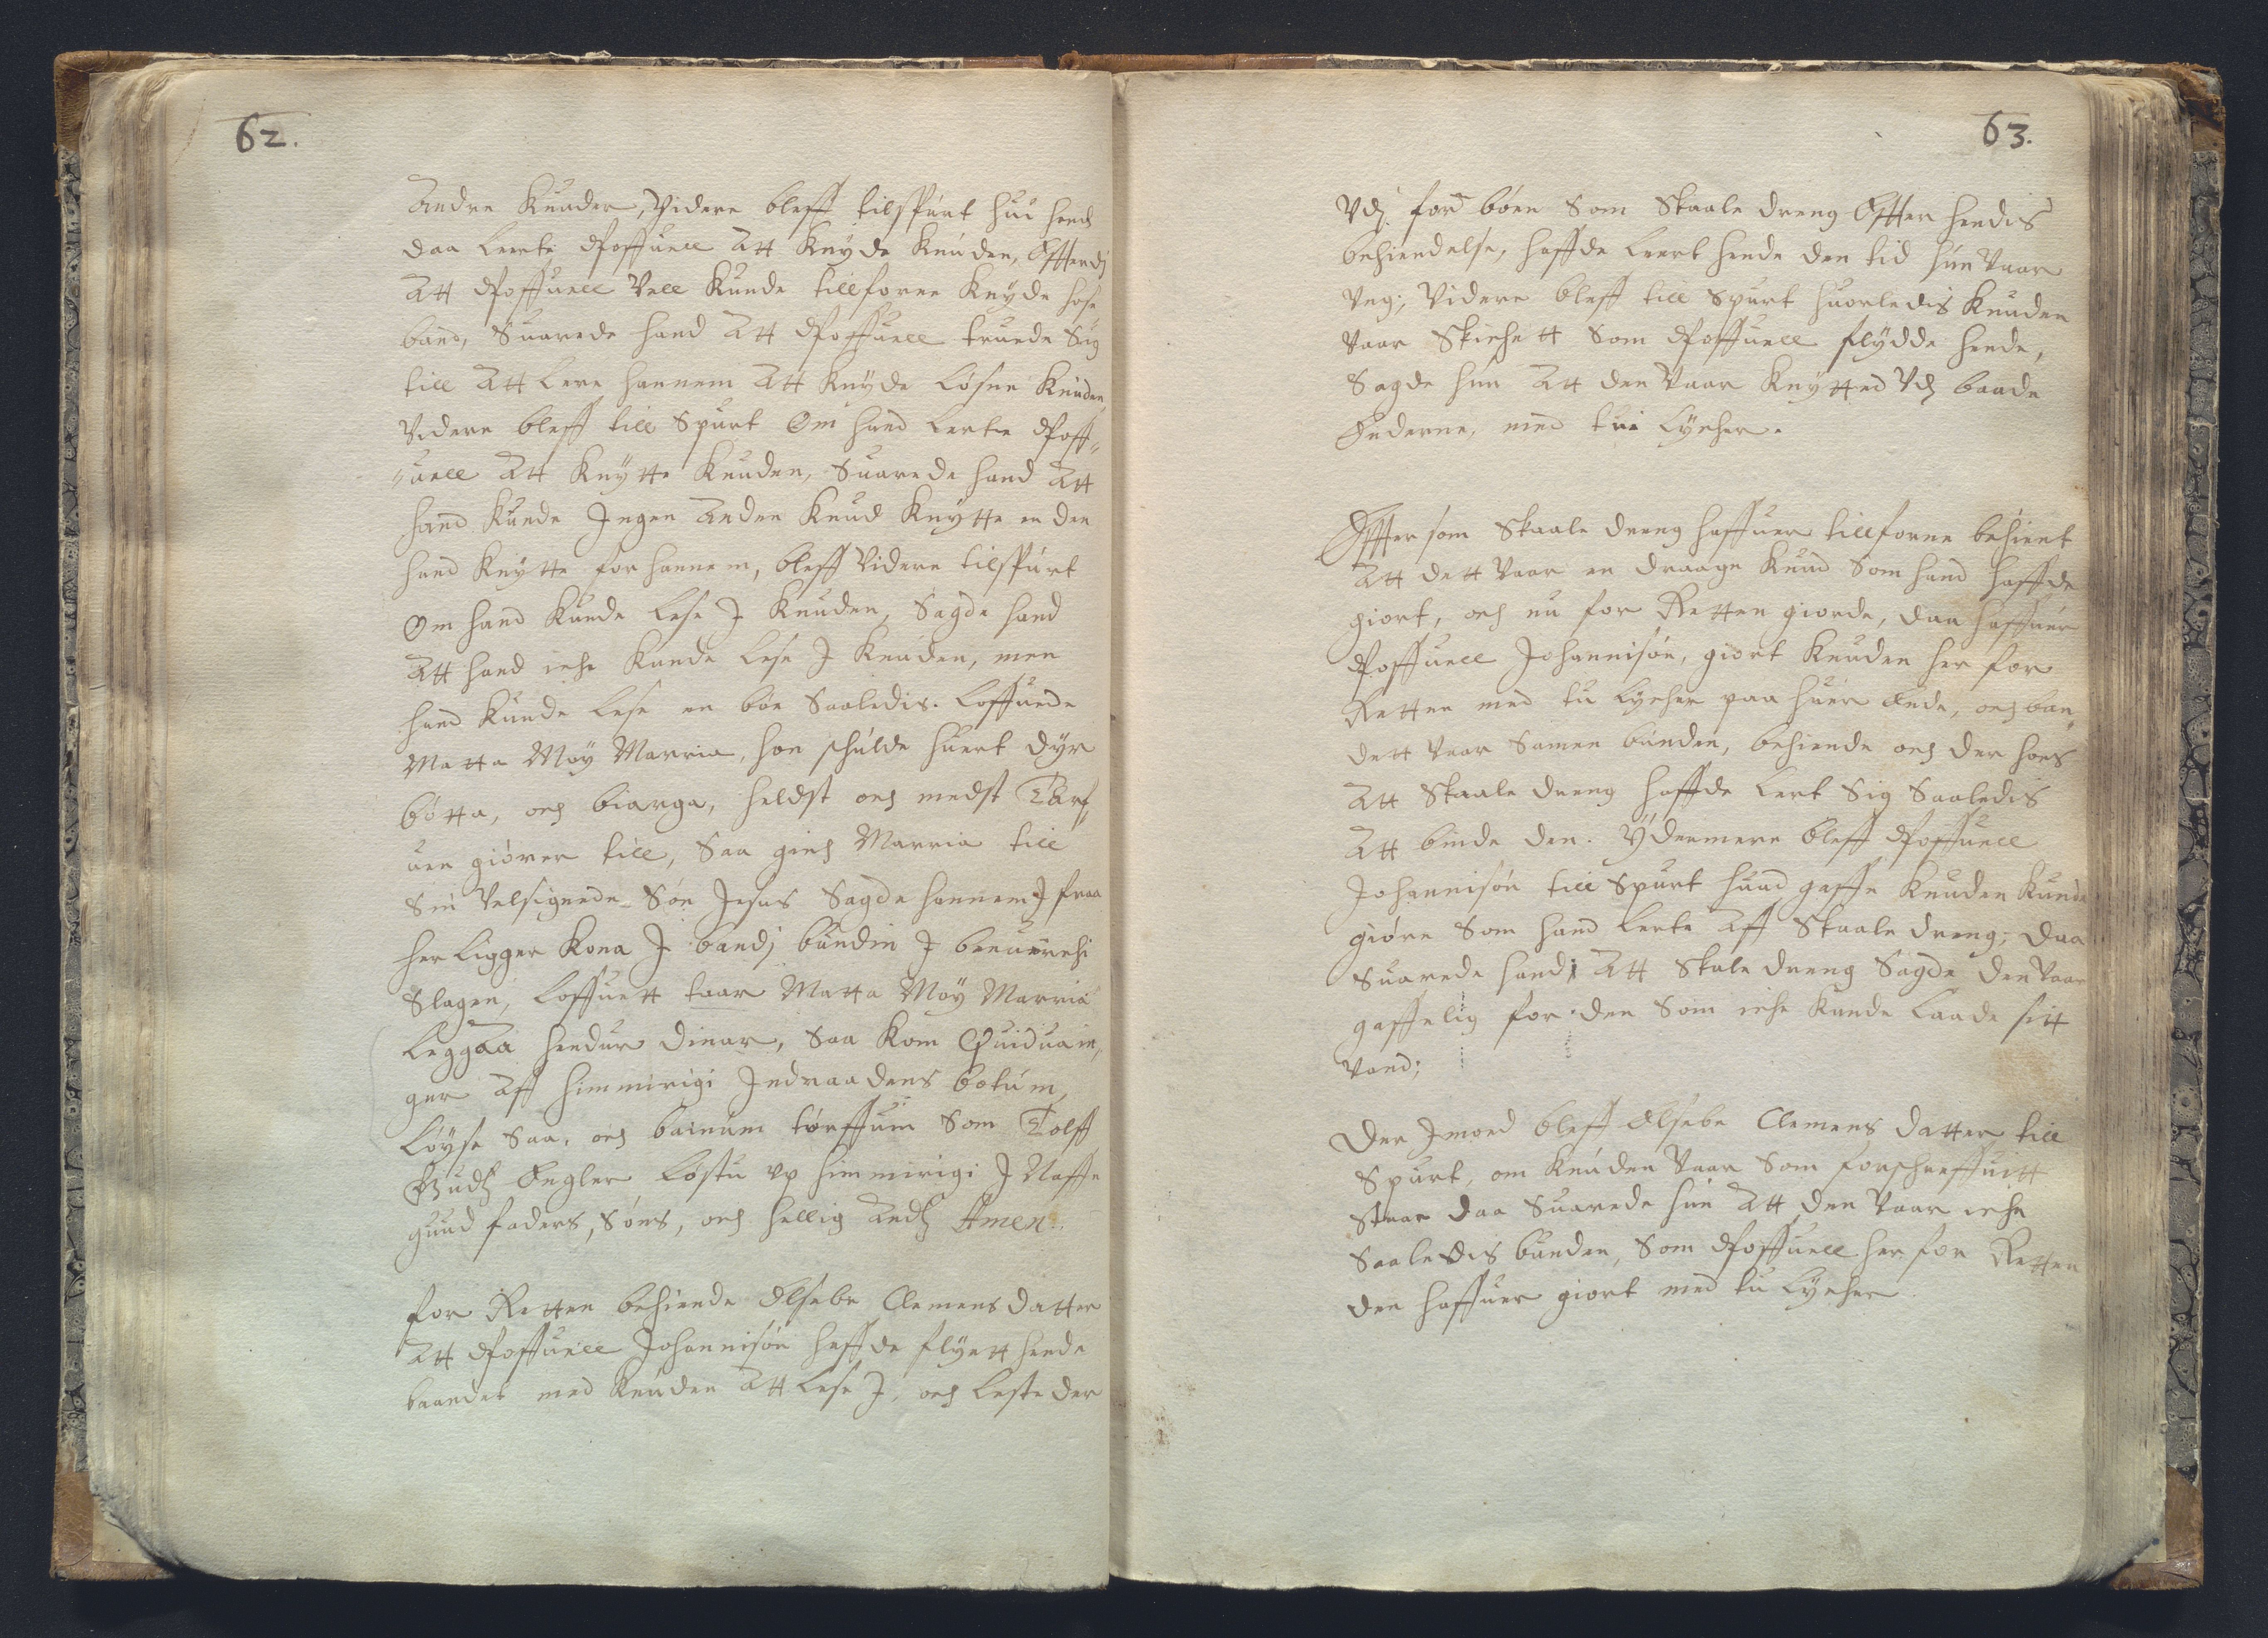 62.
Andre Knuder, Videre bleff tilspurt hui hand
daa leerte Poffuell Att Knyde Knuden, Effterdj
Att Poffuell Vell Kunde tillforne Knyde hose
band, Suarede hand Att Poffuell truede Sig
till Att Lere hannem Att Knyde Løsne Knuden,
Videre bleff till Spurt Om hand Lerte Poff„
„uell Att Knytte Knuden, Suarede hand Att
hand Kunde Ingen Anden Knud Knytte en den
hand Knytte for hannem, bleff Videre tilspurt
Om hand Kunde Lese I Knuden, Sagde hand
Att hand iche Kunde Lese I Knuden, men
hand Kunde Lese en bøn Saaledis. Loffuede
Matta Møy Marria, hon schulde huert dyr
bötta, och biarga, heldst och medst Tarf„
uen giörer till, Saa gich Marria till
Sin Velsignede Søn Jesus Sagde hannem I fraa
her Ligger Kona I bandj bundin I
Slagen, Loffuett taar Matta Møy Marria
Leggaa hendur dinar, Saa kom Quiduain„
ger Aff himmirigi Indraadens botum,
Löyse Saa, och bainum törffuin Som Tolff
Gudz Engler Løstu vp himmirigi I Naffn
Guud faders, Søns, och hellig Andz Amen.
for Retten behiende Elsebe Clemens datter
Att Poffuell Johannisøn haffde flyett hende
baandet med Knuden Att Lese I, och Leste der
63.
Vdj for: bøen Som Skaale dreng Effter hendis
behiendelse, haffde Leert hende den tid hun Vaar
Vng; Videre bleff till Spurt huorledis Knuden
Vaar Skichett Som Poffuell flydde hende,
Sagde hun Att den Vaar Knytted Vdj baade
Enderne, med tui Lycher.
Effter som Skaale dreng haffuer tillforne behient
Att dett Vaar en draage Knud Som hand haffde
giort, och nu for Retten giorde, daa haffuer
Poffuell Johannisøn, giort Knuden her for
Retten med tu Lycher paa huer Ende, och ban„
dett Vaar Samen bunden, behiende och der hoes
Att Skaale dreng haffde Lert Sig Saaledis
Att binde den. Ydermere bleff Poffuell
Johannisøn till Spurt huad gaffn Knuden Kunde
giøre Som hand Lerte Aff Skaale dreng; daa
Suarede hand; Att Skale dreng Sagde den Vaar
gaffnlig for den Som iche Kunde Laade sitt
Vand;
Der Imoed bleff Elsebe Clemens datter till
Spurt, om Knuden Vaar Som forschreffuitt
Staar daa Suarede hun Att den Vaar iche
Saaledis bunden, Som Poffuell her for Retten
den haffuer giort med tu Lycher